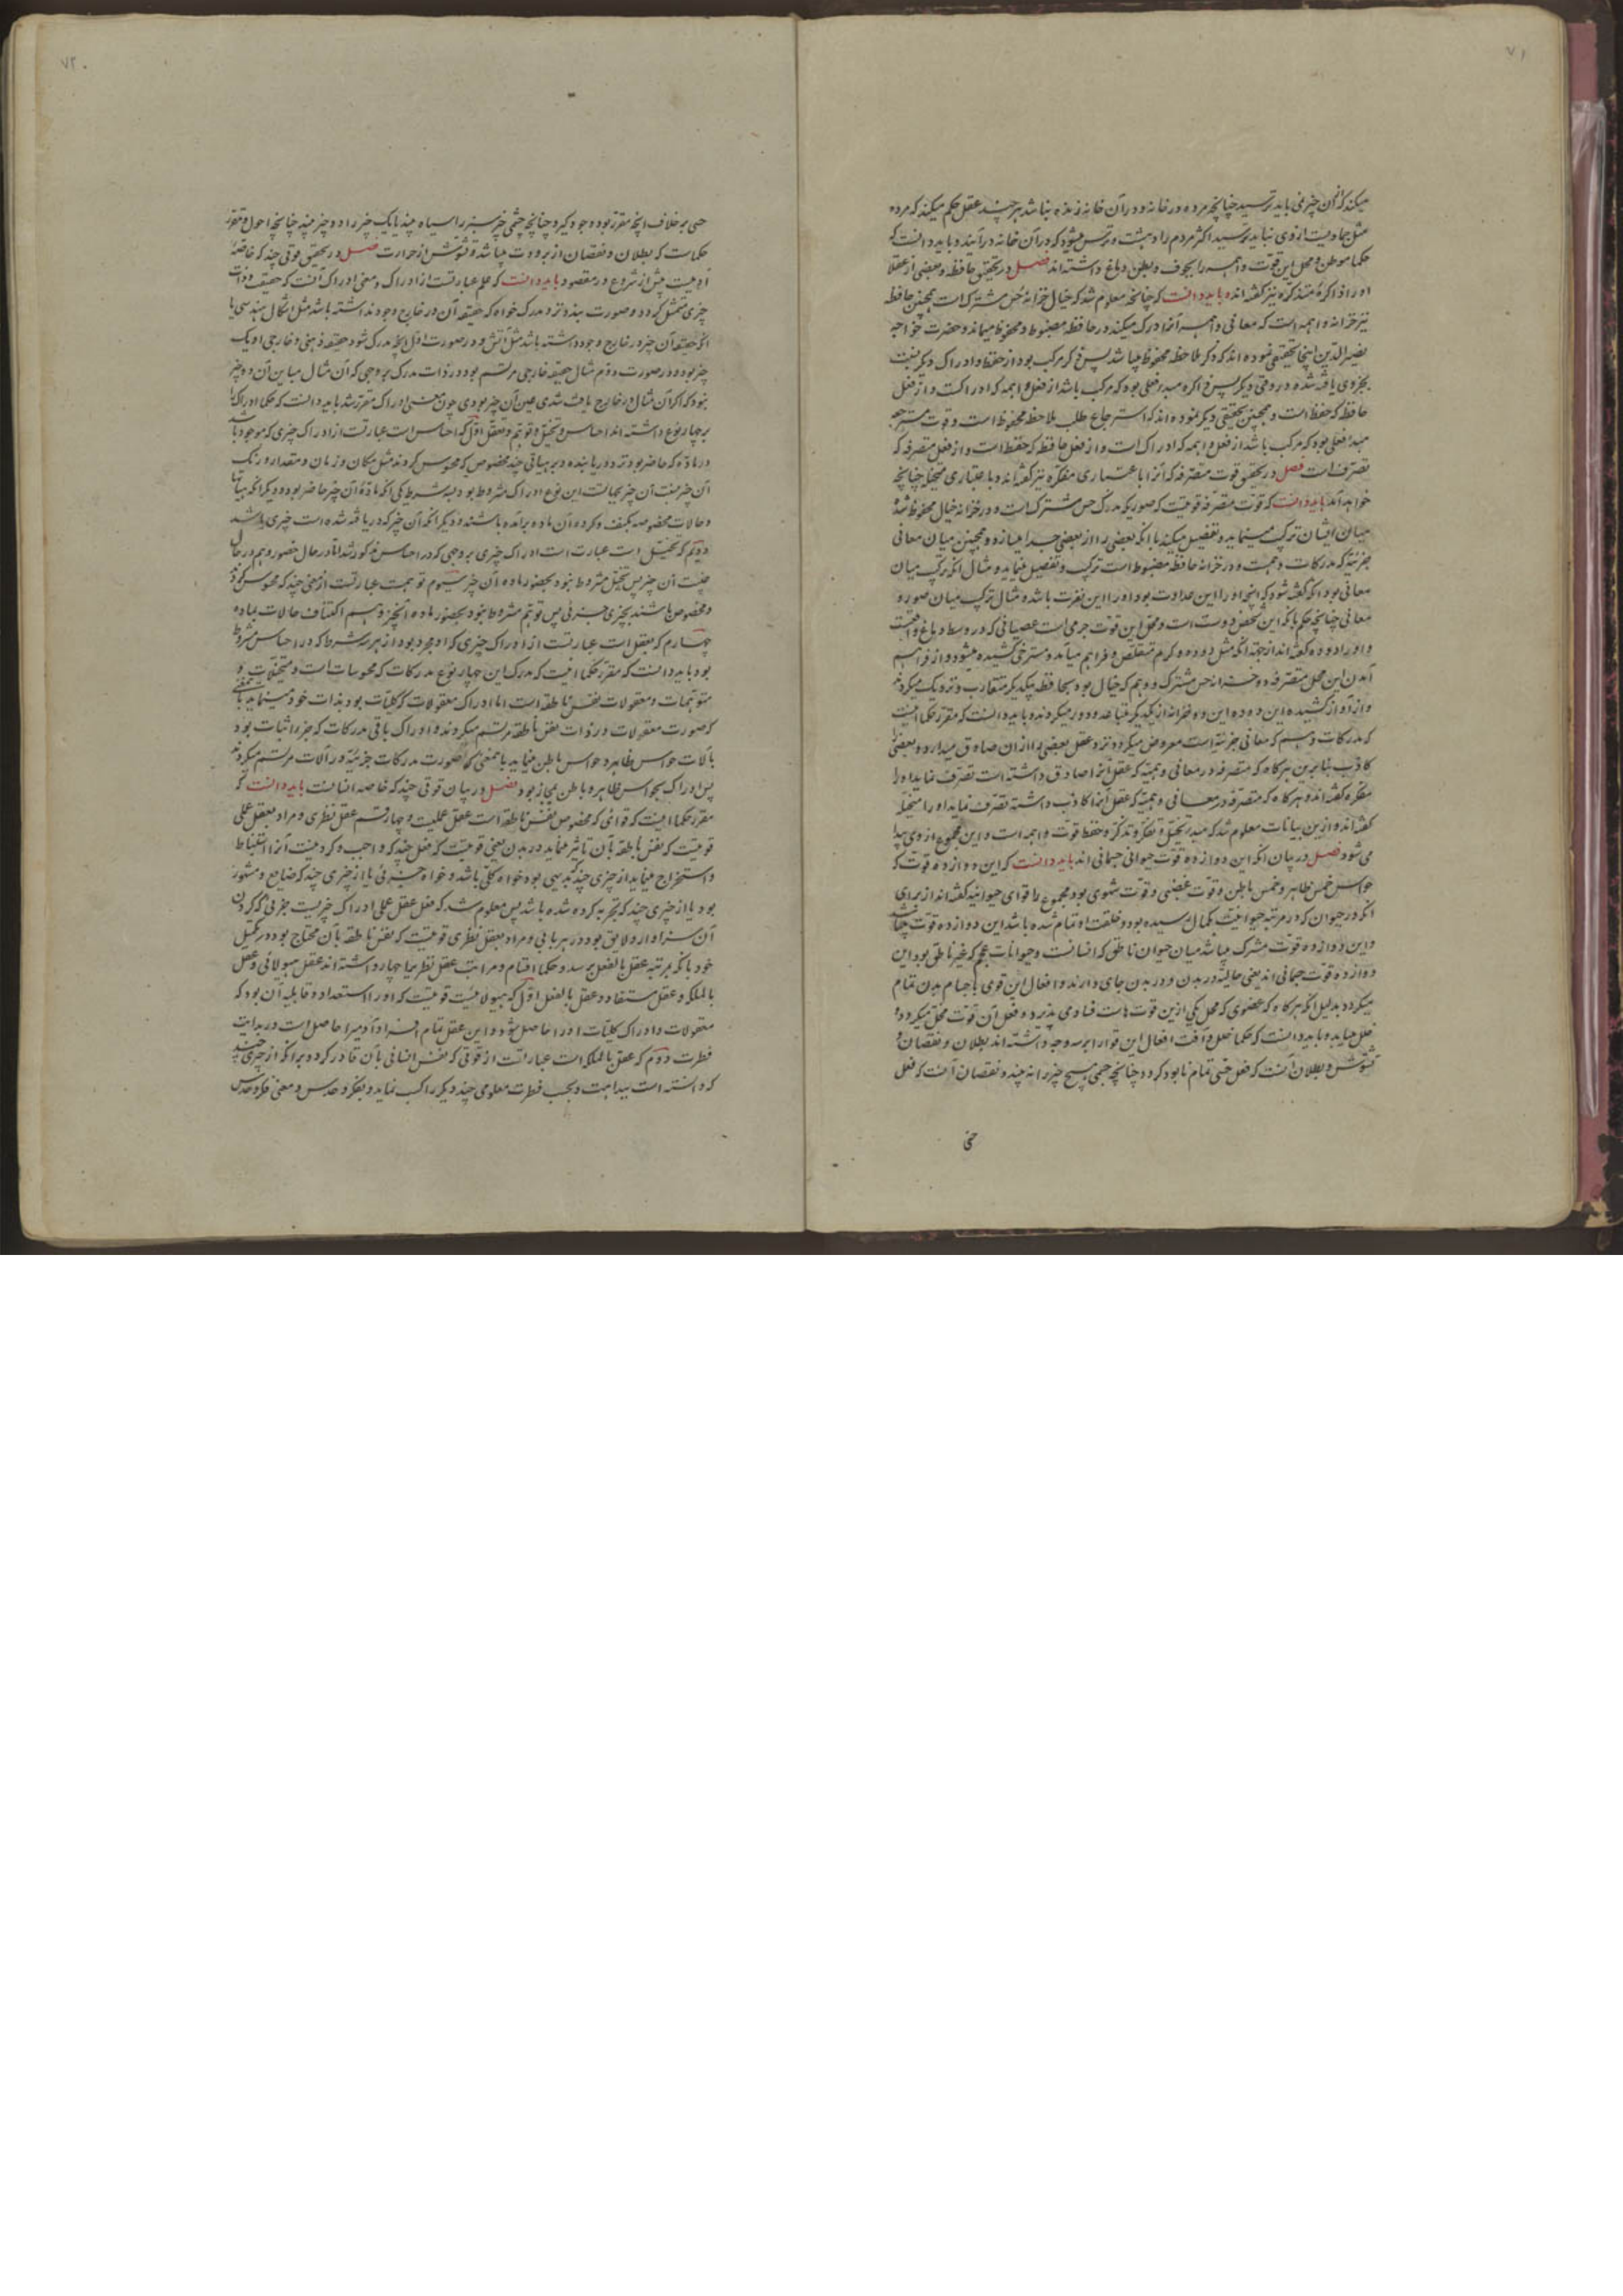 ۷۱
میکند که از آن چیز می باید ترسید چنانچه مرده در خانه و در آن خانه زنده نباشد هر چند عقل حکم میکند که مرده
مثل جمادیست از وی نباید ترسید اکثر مردم را دهشت و ترس میشود که در آن خانه در آیند و باید دانست که
حکما موطن و محل این قوت واهمه را تجویف و بطن دماغ داشته اند فصل در تحقیق حافظه و بعضی از عقلا
او را ذاکره و متذکره نیز گفته اند و باید دانست که چنانچه معلوم شد که خیال خزانهٔ حس مشترک است همچنین حافظه
نیز خزانه واهمه است که معانی واهمه آنرا درک میکند در حافظه مضبوط و محفوظ میماند و حضرت خواجه
نصیر الدین اینجا تحقیقی نموده اند که ذکر ملاحظه محفوظ میباشد پس ذکر مرکب بود از حفظ و ادراک دیگر نسبت
بچیزی یافته شده در وقتی دیگر پس ذاکره مبدء فعلی بود که مرکب باشد از فعل واهمه که ادراکست و از فعل
حافظه که حفظ است و همچنین تحقیقی دیگر نموده اند که استرجاع طلب ملاحظه محفوظ است و قوت مسترجعه
مبدء فعلی بود که مرکب باشد از فعل واهمه که ادراک است و از فعل حافظه که حفظ است و از فعل متصرفه که
تصرف است فصل در تحقیق قوت متصرفه که آنرا باعتباری متفکره نیز گفته اند و باعتباری متخیله چنانچه
خواهد آمد باید دانست که قوت متصرفه قوتیست که صوریکه مدرک حس مشترک است و در خزانه خیال محفوظ شده
میان ایشان ترکیب مینماید و تفصیل میکند با آنکه بعضی را از بعضی جدا میسازد و همچنین میان معانی
جزئیه که مدرکات وهمست و در خزانه حافظه مضبوط است ترکیب و تفصیل مینماید مثال آنکه ترکیب میان
معانی بود آنکه گفته شود که آنچه او را این عداوت بود او را این نفرت باشد و مثال ترکیب میان صور و
معانی چنانچه حکم بآنکه این شخص دوست است و محل این قوت جرمی است عصبانی که در وسط دماغ واقعست
و او را دوده گفته اند از جهت آنکه مثل دوده و کرم متقلص و فراهم میآید و مسترخی کشیده میشود و از فراهم
آمدن این محل متصرفه دو خزانه حس مشترک و وهم که خیال بود بحافظه بیکدیگر متقارب و نزدیک میگردند
و از کشیدن این دوده این دو خزانه از یکدیگر متباعد و دور میگردند و باید دانست که مقرر حکما اینست
که مدرکات وهم که معانی جزئیه است معروض میگردد نزد عقل بعضی را از آن صادق میدارد و بعضی را
کاذب بنابرین هرگاه که متصرفه در معانی وهمیه که عقل آنرا صادق داشته است تصرف نماید او را
متفکره گفته اند و هرگاه که متصرفه در معانی وهمیه که عقل آنرا کاذب داشته تصرف نماید او را متخیله
گفته اند و ازین بیانات معلوم شد که مبدء تخیل و تفکر و تذکر و حفظ قوت واهمه است و این مجموع از وی پیدا
می شود فصل در بیان آنکه این دوازده قوت حیوانی جسمانی اند باید دانست که این دوازده قوت که
حواس خمس ظاهر و خمس باطن و قوت غضبی و قوت شهوی بود مجموع را قوای حیوانیه گفته اند از برای
آنکه در حیوان که در مرتبه حیوانیت بکمال رسیده بود و خلقت او تمام شده باشد این دوازده قوت میباشد
و این دوازده قوت مشترک میباشد میان حیوان ناطق که انسانست و حیوانات عجم که غیر ناطق بود این
دوازده قوت جسمانی اند یعنی حالیند در بدن و در بدن جای دارند و افعال این قوی باجسام بدن تمام
میگردد بدلیل آنکه هرگاه که عضوی که محل یکی ازین قوتهاست فسادی پذیرد و فعل آن قوت مختل میگردد و
خلل میباید و باید دانست که حکما خلل و آفت افعال این قوا را بر سه وجه داشته اند بطلان و نقصان و
تشوش و بطلان آنست که فعل حسی تمام نابود گردد چنانچه چشمی هیچ چیز را نه بیند و نقصان آنست که فعل
حسی
۷۲
حسی بر خلاف آنچه مقرر بود وجود گیرد چنانچه چشمی چیز سبز را سیاه بیند یا یک چیز را دو چیز بیند چنانچه احول و مقرر
حکماست که بطلان و نقصان از برودت میباشد و تشوش از حرارت فصل در تحقیق قوتی چند که خاصهٔ
آدمیست پیش از شروع در مقصود باید دانست که علم عبارتست از ادراک و معنی ادراک آنست که حقیقت و ذات
چیزی متمثل گردد و صورت بندد نزد مدرک خواه که حقیقه آن در خارج وجود نداشته باشد مثل اشکال هندسی یا
آنکه حقیقه آن چیز در خارج وجود داشته باشد مثل آتش و در صورت اول آنچه مدرک شود حقیقه ذهنی و خارجی او یک
چیز بود و در صورت دوم مثال حقیقه خارجی مرتسم بود در ذات مدرک بر وجهی که آن مثال مباین آن چیز
نبود که اگر آن مثال در خارج یافت شدی عین آن چیز بودی چون معنی ادراک مقرر شد باید دانست که حکما ادراک را
بر چهار نوع داشته اند احساس و تخیل و توهم و تعقل اول که احساس است عبارتست از ادراک چیزی که موجود باشد
در مادّه که حاضر بود نزد دریابنده و بر هیأتی چند مخصوص که محسوس گردند مثل مکان و زمان و مقدار و رنگ
آن چیز پس این نوع ادراک مشروط بود بسه شرط یکی آنکه مادّهٔ آن چیز حاضر بود و دیگر آنکه هیأت
و حالات مخصوصه مکتنف و گرد آن ماده برآمده باشند و دیگر آنکه آن چیز که دریافته شده است جزئی باشد
دویم که تخیل است عبارت است ادراک چیزی بر وجهی که در احساس مذکور شد اما در حال حضور و هم در حال
غیبت آن چیز پس تخیل مشروط نبود بحضور ماده آن چیز سیوم توهمست عبارتست از معنی چند که محسوس نگردند
و مخصوص باشند بچیزی جزئی پس توهم مشروط نبود بحضور ماده آنچیز و هم اکتناف حالات بماده
چهارم که تعقل است عبارتست از ادراک چیزی که او مجرد بود از هر سه شرط که در احساس مشروط
بود باید دانست که مقرر حکما اینست که مدرک این چهار نوع مدرکات که محسوسات است و متخیلات و
متوهمات و معقولات نفس ناطقه است اما ادراک معقولات که کلیات بود بذات خود مینماید بآنمعنی
که صورت معقولات در ذات نفس ناطقه مرتسم میگردند و ادراک باقی مدرکات که جزوانیات بود
بآلات حواس ظاهر و حواس باطن مینماید بآنمعنی که صورت مدرکات جزئیه در آلات مرتسم میگردند
پس ادراک بحواس ظاهر و باطن مجاز بود فصل در بیان قوتی چند که خاصه انسانست باید دانست که
مقرر حکما اینست که قوائی که مخصوص نفس ناطقه است عقل عملیست و چهار قسم عقل نظری و مراد بعقل عملی
قوتیست که نفس ناطقه بآن تاثیر مینماید در بدن یعنی قوتیست که فعل چند که واجب و کردنیست آنرا استنباط
و استخراج مینماید از چیزی چند که بدیهی بود خواه کلی باشد و خواه جزئی یا از چیزی چند که ضایع و مشهور
بود یا از چیزی چند که تجربه کرده شده باشد پس معلوم شد که فعل عقل عملی ادراک چیزیست جزئی که کردن
آن سزاوار و لایق بود در هر بابی و مراد بعقل نظری قوتیست که نفس ناطقه بآن محتاج بود در تکمیل
خود بآنکه بمرتبه عقل بالفعل برسد و حکما اقسام و مراتب عقل نظریرا چهار داشته اند عقل هیولانی و عقل
بالملکه و عقل مستفاد و عقل بالفعل اول که هیولانیست قوتیست که او را استعداد و قابلیه آن بود که
معقولات و ادراک کلیّات او را حاصل شود و این عقل تمام افراد آدمیرا حاصل است در بدایت
فطرت دوم که عقل بالملکه است عبارتست از قوتی که نفس انسانی بآن قادر گردد بر آنکه از چیزی چند
که دانسته است ببداهت و بحسب فطرت معلومی چند دیگر را کسب نماید و بفکر و حدس و معنی فکر و حدس